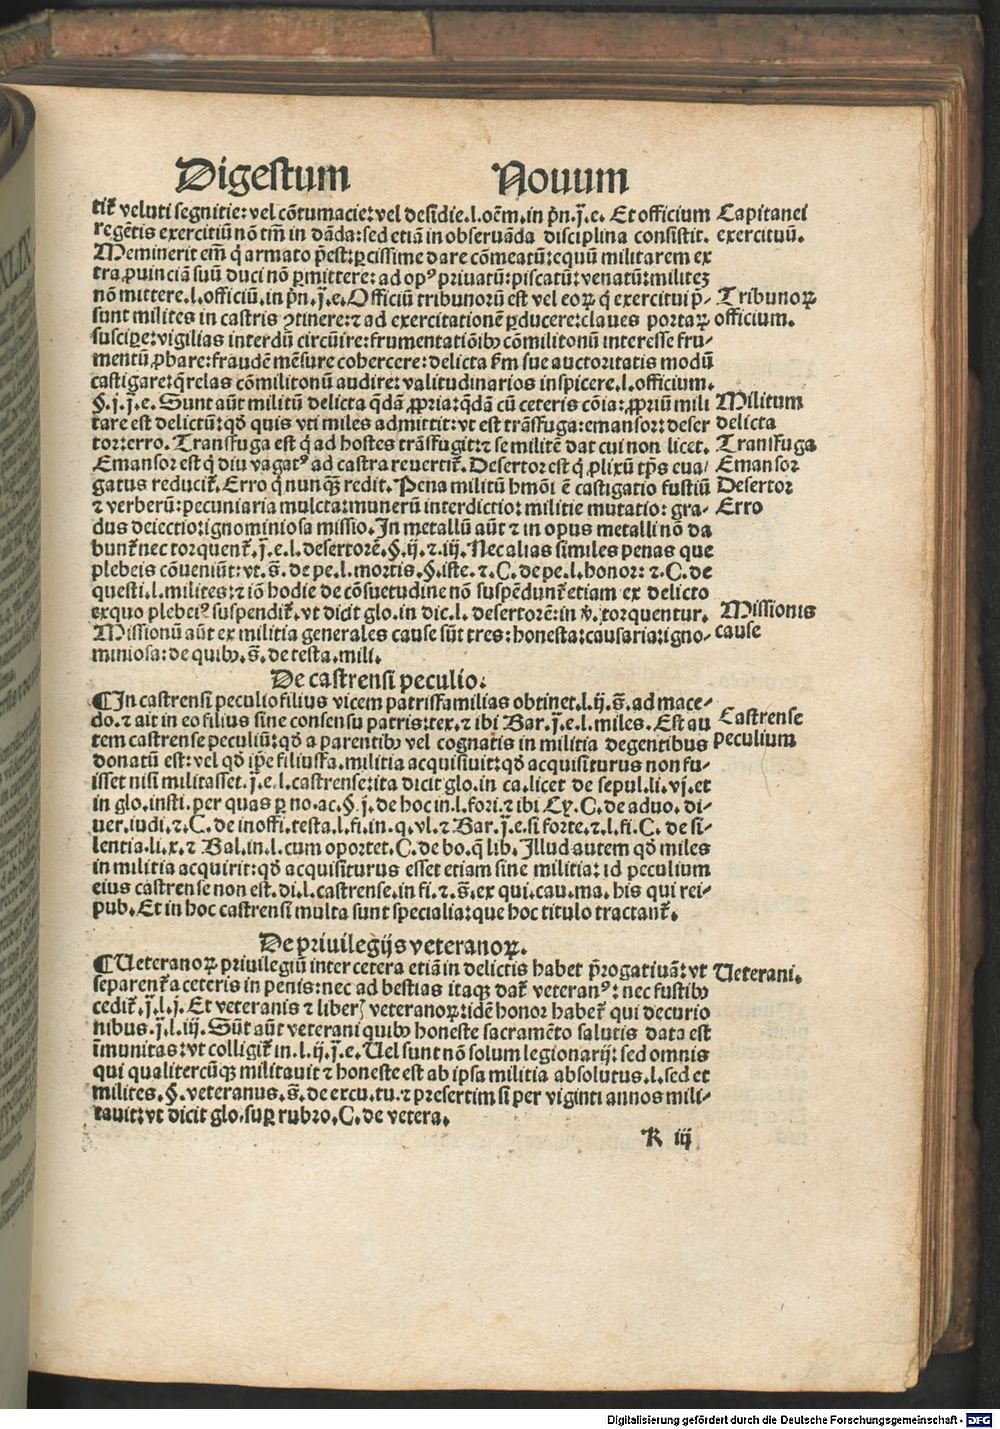 Digestum Nouum
tit᷑ veluti segnitie: vel cōtumacie: vel desidie.l.oēm.in pn̄.j̄.e. Et officium Capitanei
regētis exercitiū nō tm̄ in dāda: sed etiā in obseruāda disciplina consistit. exercituū.
Meminerit em̄ q̇ armato p̄est: ꝑcissime dare cōmeatū: equū militarem ex
tra ꝓuinciā suū duci nō ꝑmittere: ad opꝰ priuatū: piscatū: venatū: militeʒ
nō mittere.l.officiū.in pn̄.j̄.e. Officiū tribunorū est vel eoꝝ q̇ exercitui p̄- Tribunoꝝ
sunt milites in castris ↄtinere: ⁊ ad exercitationē ꝓducere: claues portaꝝ officium.
suscipe: vigilias interdū circūire: frumentatiōibꝫ cōmilitonū interesse fru-
mentū ꝓbare: fraudē mēsure cohercere: delicta ẜm sue auctoritatis modū
castigare: q̄relas cōmilitonū audire: valitudinarios inspicere.l.officium.
§.j.j̄.e. Sunt aūt militū delicta q̄dā ꝓpria: q̄dā cū ceteris cōia: ꝓpriū mili Militum
tare est delictū: qd̄ quis vti miles admittit: vt est trāsfuga: emansor: deser delicta
tor: erro. Transfuga est q̇ ad hostes trāsfugit: ⁊ se militē dat cui non licet. Transfuga
Emansor est q̇ diu vagatꝰ ad castra reuertit᷑. Desertor est q̇ ꝓlixū tp̄s eua/ Emansor
gatus reducit᷑. Erro q̇ nunꝙ redit. Pena militū hmōi ē castigatio fustiū Desertor
⁊ verberū: pecuniaria mulcta: munerū interdictio: militie mutatio: gra- Erro
dus deiectio: ignominiosa missio. In metallū aūt ⁊ in opus metalli nō da
bunt᷑ nec torquent᷑.j̄.e.l.desertorē.§.ij.⁊.iij. Nec alias similes penas que
plebeis cōueniūt: vt.s̄.de pe.l.mortis.§.iste.⁊.C.de pe.l.honor: ⁊.C.de
questi.l.milites: ⁊ iō hodie de cōsuetudine nō suspēdunt᷑ etiam ex delicto
exquo plebeiꝰ suspendit᷑. vt dicit glo.in dic.l.desertorē: in ꝟ. torquentur. Missionis
Missionū aūt ex militia generales cause sūt tres: honesta: causaria: igno- cause
miniosa: de quibꝫ.s̄.de testa.mili.
De castrensi peculio.
¶In castrensi peculio filius vicem patrisfamilias obtinet.l.ij.s̄.ad mace-
do.⁊ ait in eo filius sine consensu patris: tex.⁊ ibi Bar.j̄.e.l.miles. Est au Castrense
tem castrense peculiū: qd̄ a parentibꝫ vel cognatis in militia degentibus peculium
donatū est: vel qd̄ ip̄e filiusfa.militia acquisiuit: qd̄ acquisiturus non fu-
isset nisi militasset.j̄.e.l.castrense: ita dicit glo.in ca.licet de sepul.li.vj.et
in glo.insti.per quas ꝑ no.ac.§.j.de hoc in.l.fori.⁊ ibi Cy.C.de aduo.di-
uer.iudi.⁊.C.de inoffi.testa.l.fi.in.q.vl.⁊ Bar.j̄.e.si forte.⁊.l.fi.C. de si-
lentia.li.x.⁊ Bal.in.l.cum oportet.C.de bo.q̄ lib. Illud autem qd̄ miles
in militia acquirit: qd̄ acquisiturus esset etiam sine militia: id peculium
eius castrense non est.di.l.castrense.in fi.⁊.s̄.ex qui.cau.ma. his qui rei-
pub. Et in hoc castrensi multa sunt specialia: que hoc titulo tractant᷑.
De priuilegijs veteranoꝝ.
¶Veteranoꝝ priuilegiū inter cetera etiā in delictis habet p̄rogatiuā: vt Veterani.
separent᷑ a ceteris in penis: nec ad bestias itaqꝫ dat᷑ veteranꝰ: nec fustibꝫ
cedit᷑.j̄.l.j. Et veteranis ⁊ liberꝭ veteranoꝝ: idē honor habet᷑ qui decurio
nibus.j̄.l.iij. Sūt aūt veterani quibꝫ honeste sacramēto salutis data est
īmunitas: vt colligit᷑ in.l.ij.j̄.e. Vel sunt nō solum legionarij: sed omnis
qui qualitercūqꝫ militauit ⁊ honeste est ab ipsa militia absolutus.l.sed et
milites.§.veteranus.s̄.de excu.tu.⁊ presertim si per viginti annos mili-
tauit: vt dicit glo.suꝑ rubro.C.de vetera.
K iij
XLIX
Digitalisierung gefördert durch die Deutsche Forschungsgemeinschaft - DFG